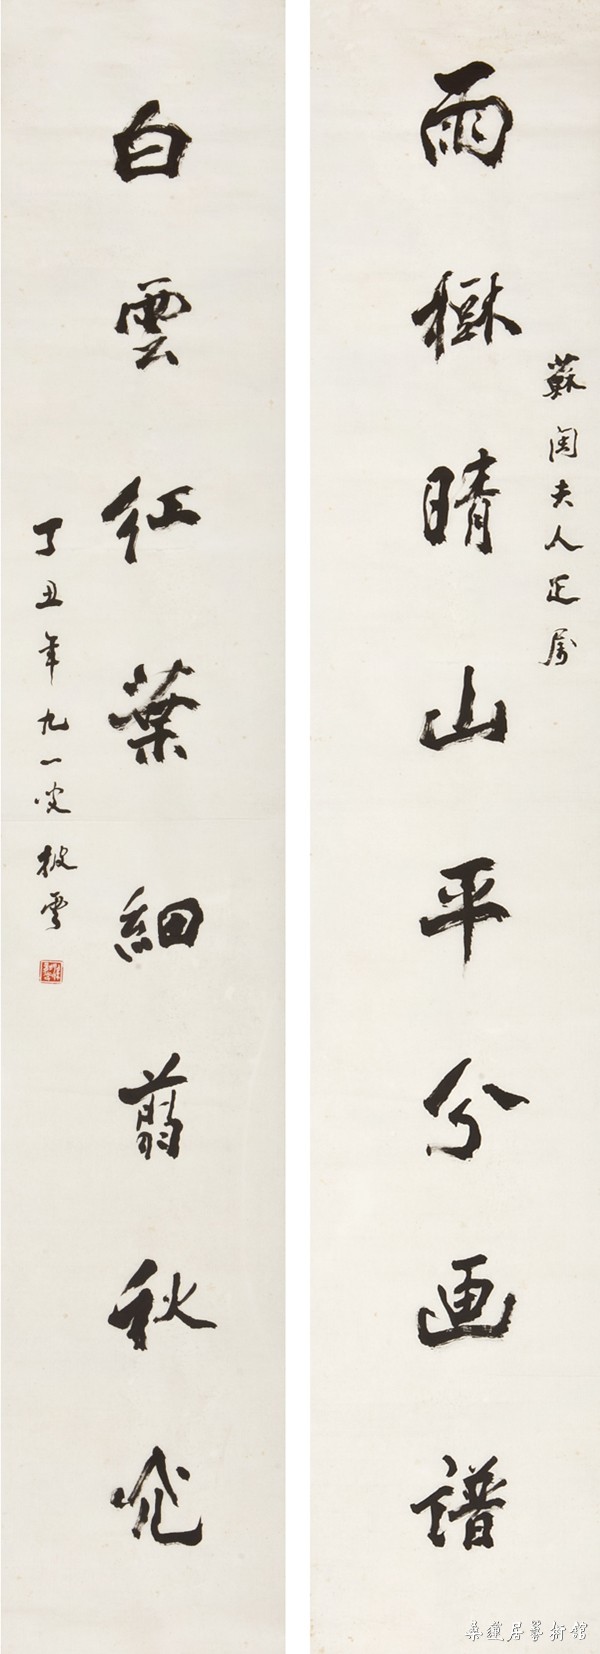 雨樹晴山平分画譜
蘇夫人正属
白雲紅葉細翦秋光
丁丑年九一叟披雲
桑蓮居藝術館